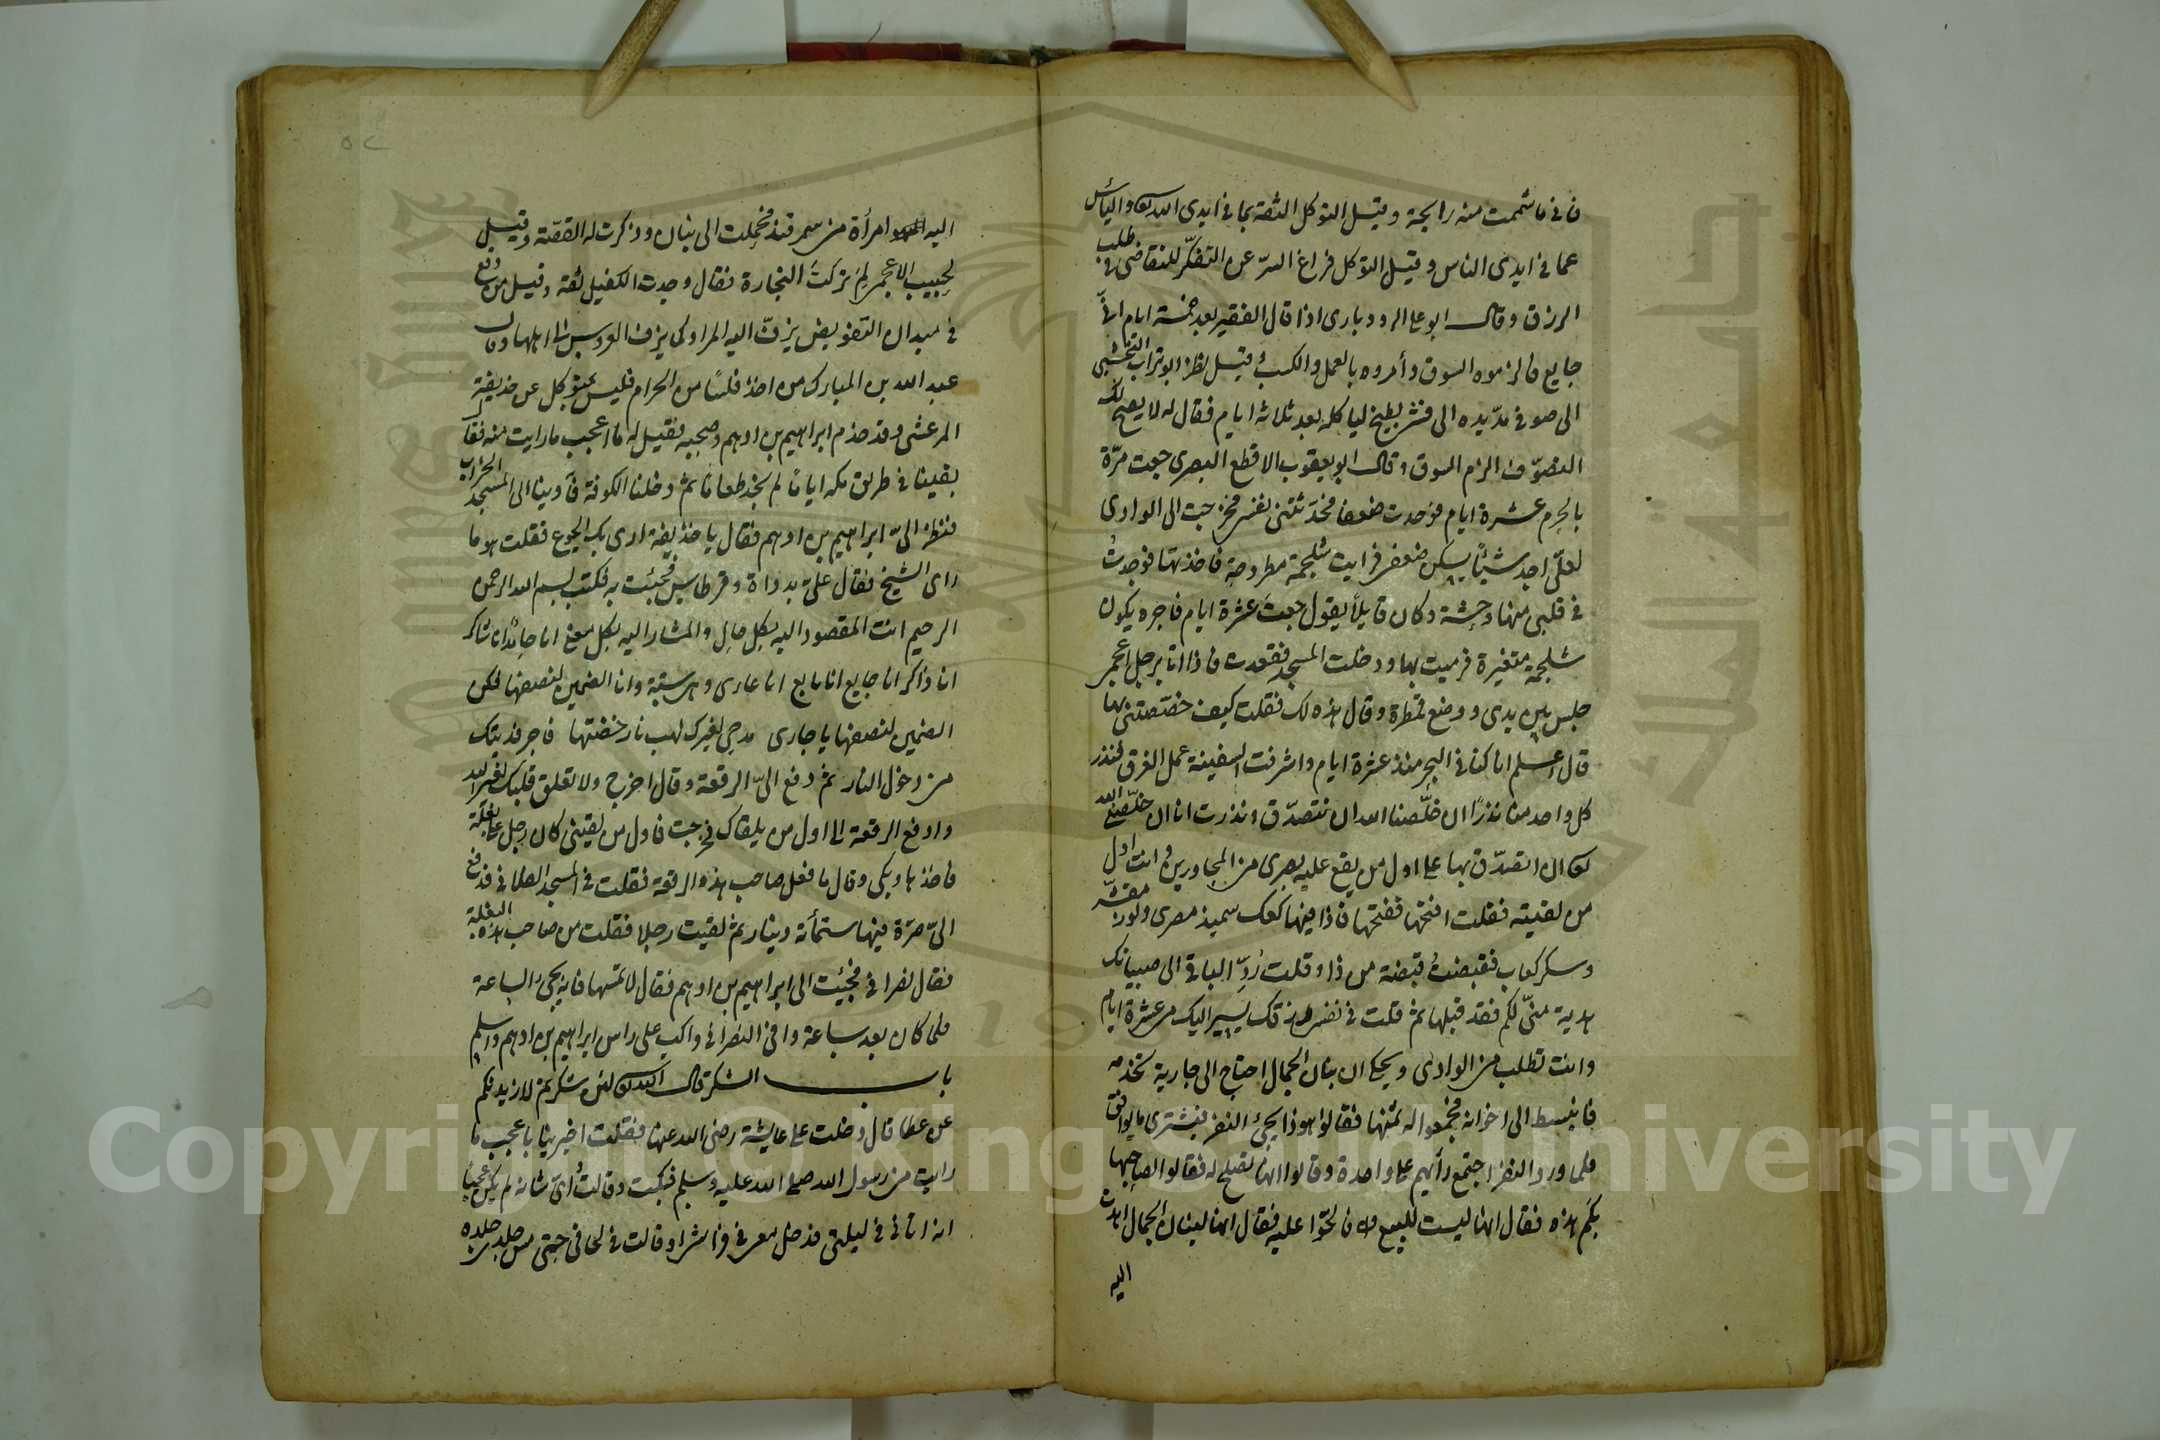 فانى ما شممت منه رايحة وقيل التوكل الثقة بما فى ايدى الله تعالى والياس
عما فى ايدى الناس وقيل التوكل فراغ السرّ عن التفكّر للتقاضى فى طلب
الرزق وقال ابو على الرودبارى اذا قال الفقير بعد خمسة ايام انى
جايع فالزموه السوق وأمروه بالعمل والكسب وقيل نظر ابو تراب النخشبى
الى صوفى مدّ يده الى قشر بطيخ لياكله بعد ثلاثة ايام فقال له لا يصح لك
التصوّف الزم السوق وقال ابو يعقوب الاقطع البصرى جعت مرّة
بالحرم عشرة ايام فوجدت ضعفا فحدّثتنى نفسى فخرجت الى الوادى
لعلّى اجد شيئًا يسكن ضعفى فرايت شلجمة مطروحة فاخذتها فوجدتُ
فى قلبى منها وحشة وكان قايلاً يقول جعتَ عشرة ايام فاجره يكون
شلجمة متغيرة فرميت بها ودخلت المسجد فقعدت فاذا انا برجل اعجمى
جلس بين يدى ووضع قمطرة وقال هذه لك فقلت كيف خصّصتنى بها
قال اعلم انا كنا فى البحر منذ عشرة ايام واشرفت السفينة على الغرق فنذر
كل واحد منا نذرًا ان خلّصنا الله ان نتصدّق ونذرت انا ان خلّصنى الله
تعالى ان اتصدّق بها على اول من يقع عليه بصرى من المجاورين وانت اول
من لقيته فقلت افتحها ففتحها فاذا فيها كعك سميذ مصرى ولوز مقشّر
وسكر كعاب فقبضتُ قبضة من ذا وقلت رُدّ الباقى الى صبيانك
هدية منّى لكم فقد قبلتها ثم قلت فى نفسى رزقك يسير اليك من عشرة ايام
وانت تطلب من الوادى ويحكى ان بنان الجمال احتاج الى جارية تخدمه
فانبسط الى اخوانه فجمعوا له ثمنها فقالوا هوذا يجئ النفر فنشترى ما يوافق
فلما ورد النفر اجتمع رأيهم على واحدة وقالوا انها تصلح له فقالوا لصاحبها
بكم هذه فقال انها ليست للبيع فالحّوا عليه فقال انها لبنان الجمال اهدت
اليه
اليه امرأة من سمرقند فحملت الى بنان وذكرت له القصّة وقيل
لحبيب الاعجمى لم تركتَ التجارة فقال وجدت الكفيل ثقة وقيل من وقع
فى ميدان التفويض يزفّ اليه المراد كما يزف العروس الى اهلها وقال
عبد الله بن المبارك من اخذ فلسًا من الحرام فليس بمتوكل عن حذيفة
المرعشى وقد خدم ابراهيم بن ادهم وصحبه فقيل له ما اعجب ما رايت منه فقال
بقينا فى طريق مكة اياما لم نجد طعاما ثم دخلنا الكوفة فآوينا الى المسجد الخراب
فنظر الىّ ابراهيم بن ادهم فقال يا حذيفة ارى بك الجوع فقلت هو ما
راى الشيخ فقال علىّ بدواة وقرطاس فجئت به فكتب بسم الله الرحمن
الرحيم انت المقصود اليه بكل حالٍ والمشار اليه بكل معنى انا حامدٌ انا شاكر
انا ذاكر انا جايع انا نايع انا عارى وهى ستة وانا الضمين لنصفها فكن
الضمين لنصفها يا جارى مدحى لغيرك لهب نار خضتها فاجر فديتك
من دخول النار ثم دفع الىّ الرقعة وقال اخرج ولا تعلق قلبك بغير الله
وادفع الرقعة الى اول من يلقاك فخرجت فاول من لقينى كان رجل على بغلة
فاخذها وبكى وقال ما فعل صاحب هذه الرقعة فقلت فى المسجد الفلانى فدفع
الىّ صرّة فيها ستمائة دينار ثم لقيت رجلا فقلت من صاحب هذه البغلة
فقال نصرانى فجئت الى ابراهيم بن ادهم فقال لا تمسها فانه يجئ الساعة
فلما كان بعد ساعة وافى النصرانى واكب على راس ابراهيم بن ادهم واسلم
باب الشكر قال الله تعالى لئن شكرتم لازيدنكم
عن عطا قال دخلت على عايشة رضى الله عنها فقلت اخبرينا باعجب ما
رايت من رسول الله صلى الله عليه وسلم فبكت وقالت واىّ شانه لم يكن عجبًا
انه اتانى فى ليلتى فدخل معى فى فراشى او قالت فى لحافى حتى مس جلدى جلده